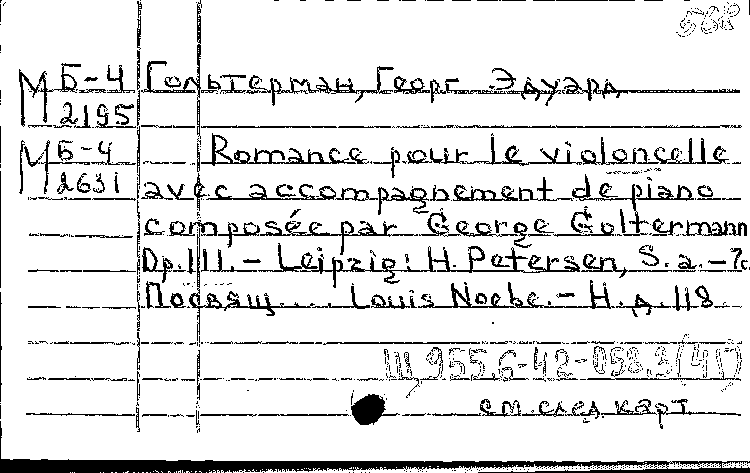 568
М Б-4 Гольтерман, Георг Эдуард
2195
М Б-4 Romance pour le violoncelle
2631 avec accompagnement de piano
composée par George Goltermann
Op. 111. - Leipzig: H. Petersen, S. a. - 7с
Посвящ.... Louis Noebe. - Н. д. 118
Ш 955.6-42-058.3(4Г)
см. след. карт.